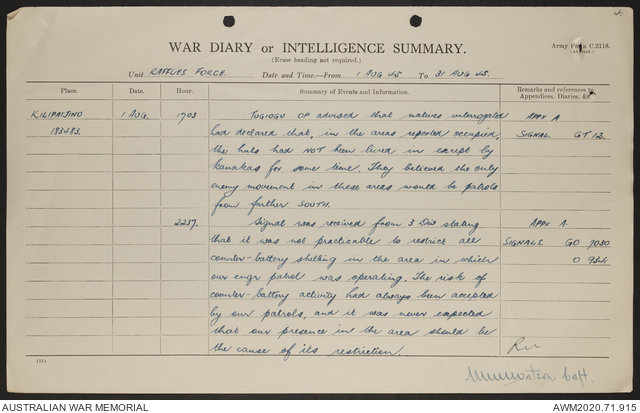 4.
WAR DIARY or INTELLIGENCE SUMMARY.
(Erase heading not required.)
Army Form C.2118.
Unit RAFFLES FORCE Date and Time—From 1 AUG 45 To 31 AUG 45.
Place. Date. Hour. Summary of Events and Information. Remarks and references to Appendices, Diaries, &c.
KILIPAIJINO 1 AUG. 1703 TUGIOGU OP advised that natives interrogated APPX A
183483. had declared that, in the areas reported occupied, SIGNAL GT 12.
the huts had NOT been lived in except by
kanakas for some time. They believed the only
enemy movement in these areas would be patrols
from further SOUTH.
2237. Signal was received from 3 Div stating APPX A.
that it was not practicable to restrict all SIGNALS. GO 7030
counter-battery shelling in the area in which O 954
our engr patrol was operating. The risk of
counter-battery activity had always been accepted
by our patrols, and it was never expected
that our presence in the area should be
the cause of its restriction.
Watson Capt.
AUSTRALIAN WAR MEMORIAL AWM2020.71.915